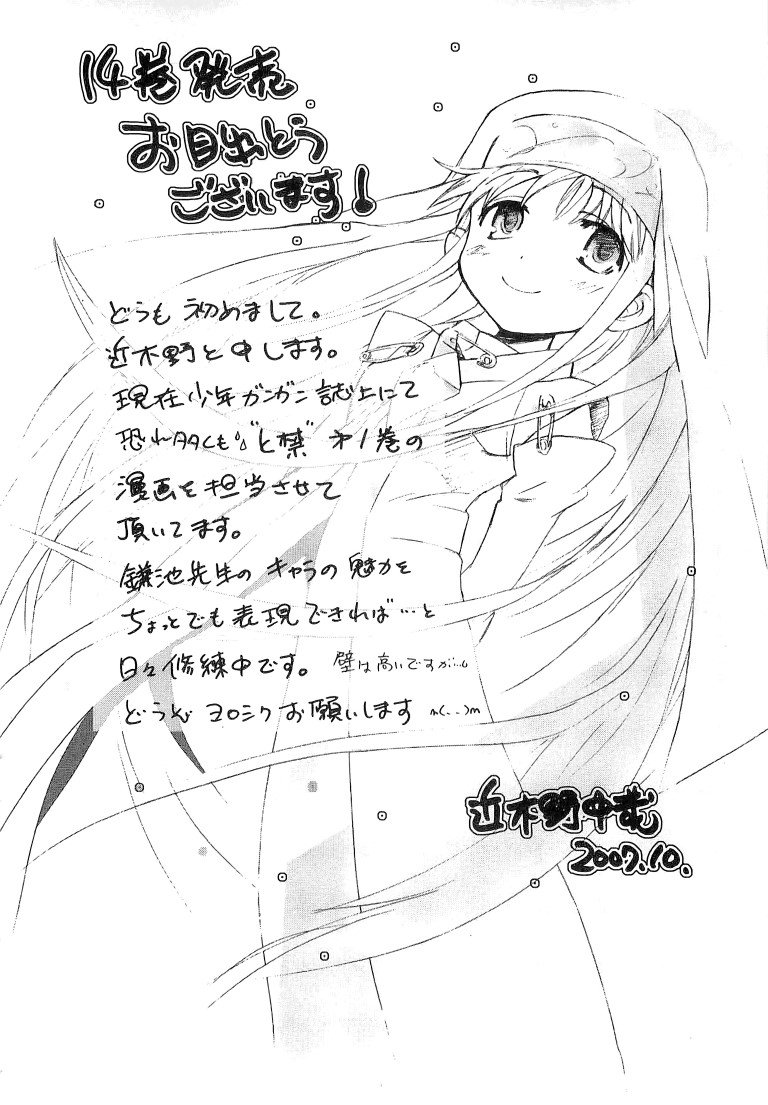 14巻発売
お目出とう
ございます!
どうも 初めまして。
近木野と申します。
現在少年ガンガン誌上にて
恐れ多くも "と禁" 第1巻の
漫画を担当させて
頂いてます。
鎌池先生の キャラの 魅力を
ちょっとでも 表現 できれば…と
日々 修練中です。 壁は高いですが…。
どうぞ ヨロシク お願いします m(..)m
近木野中哉
2007.10.